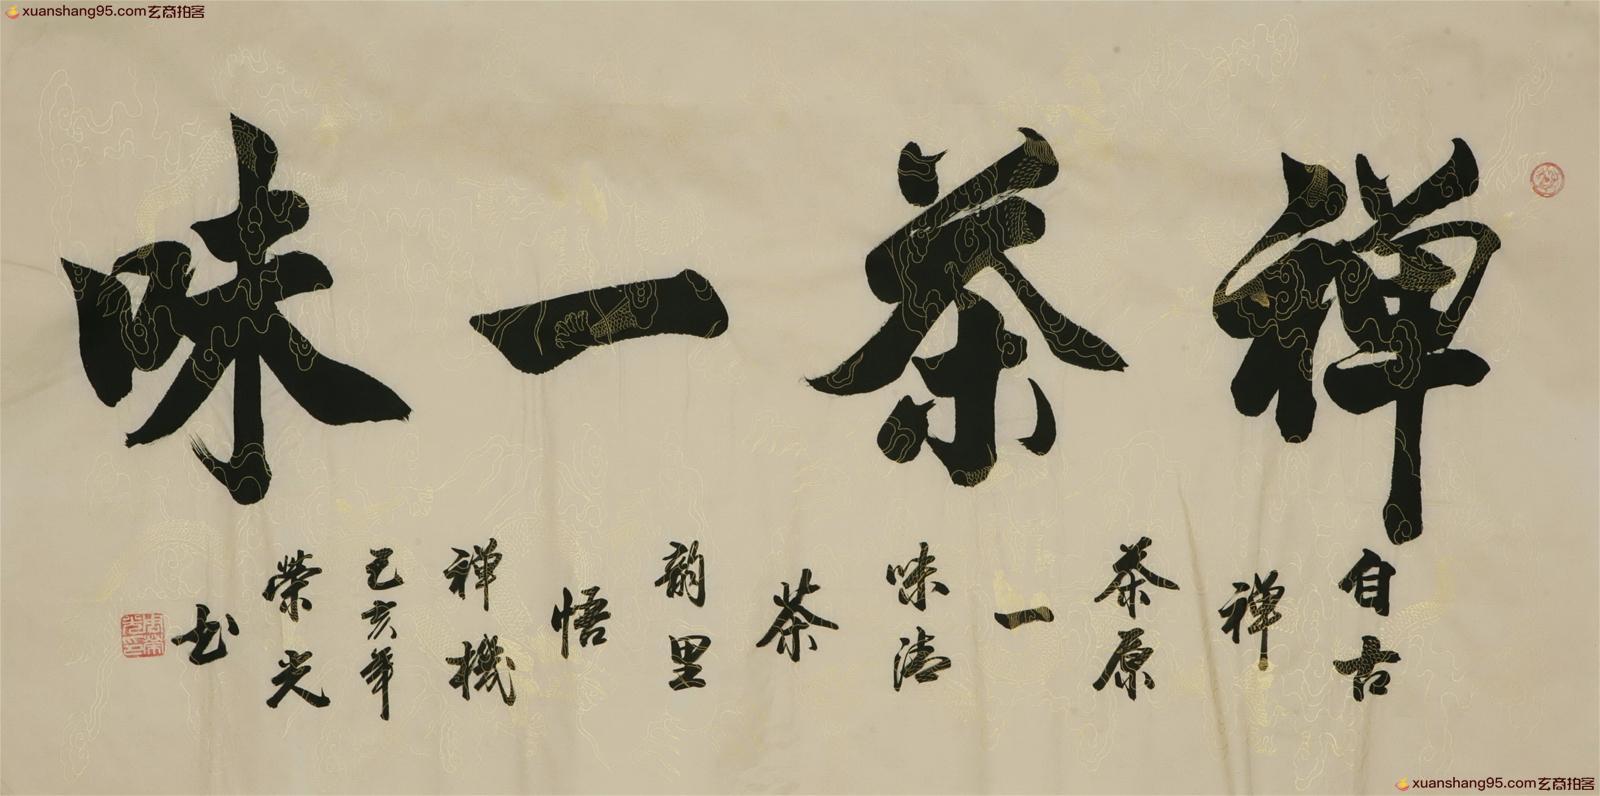 xuanshang95.com玄商拍客
禅茶一味
自古
禅
茶原
一
味清
茶
韵里
悟
禅機
己亥年
荣光
书
xuanshang95.com玄商拍客